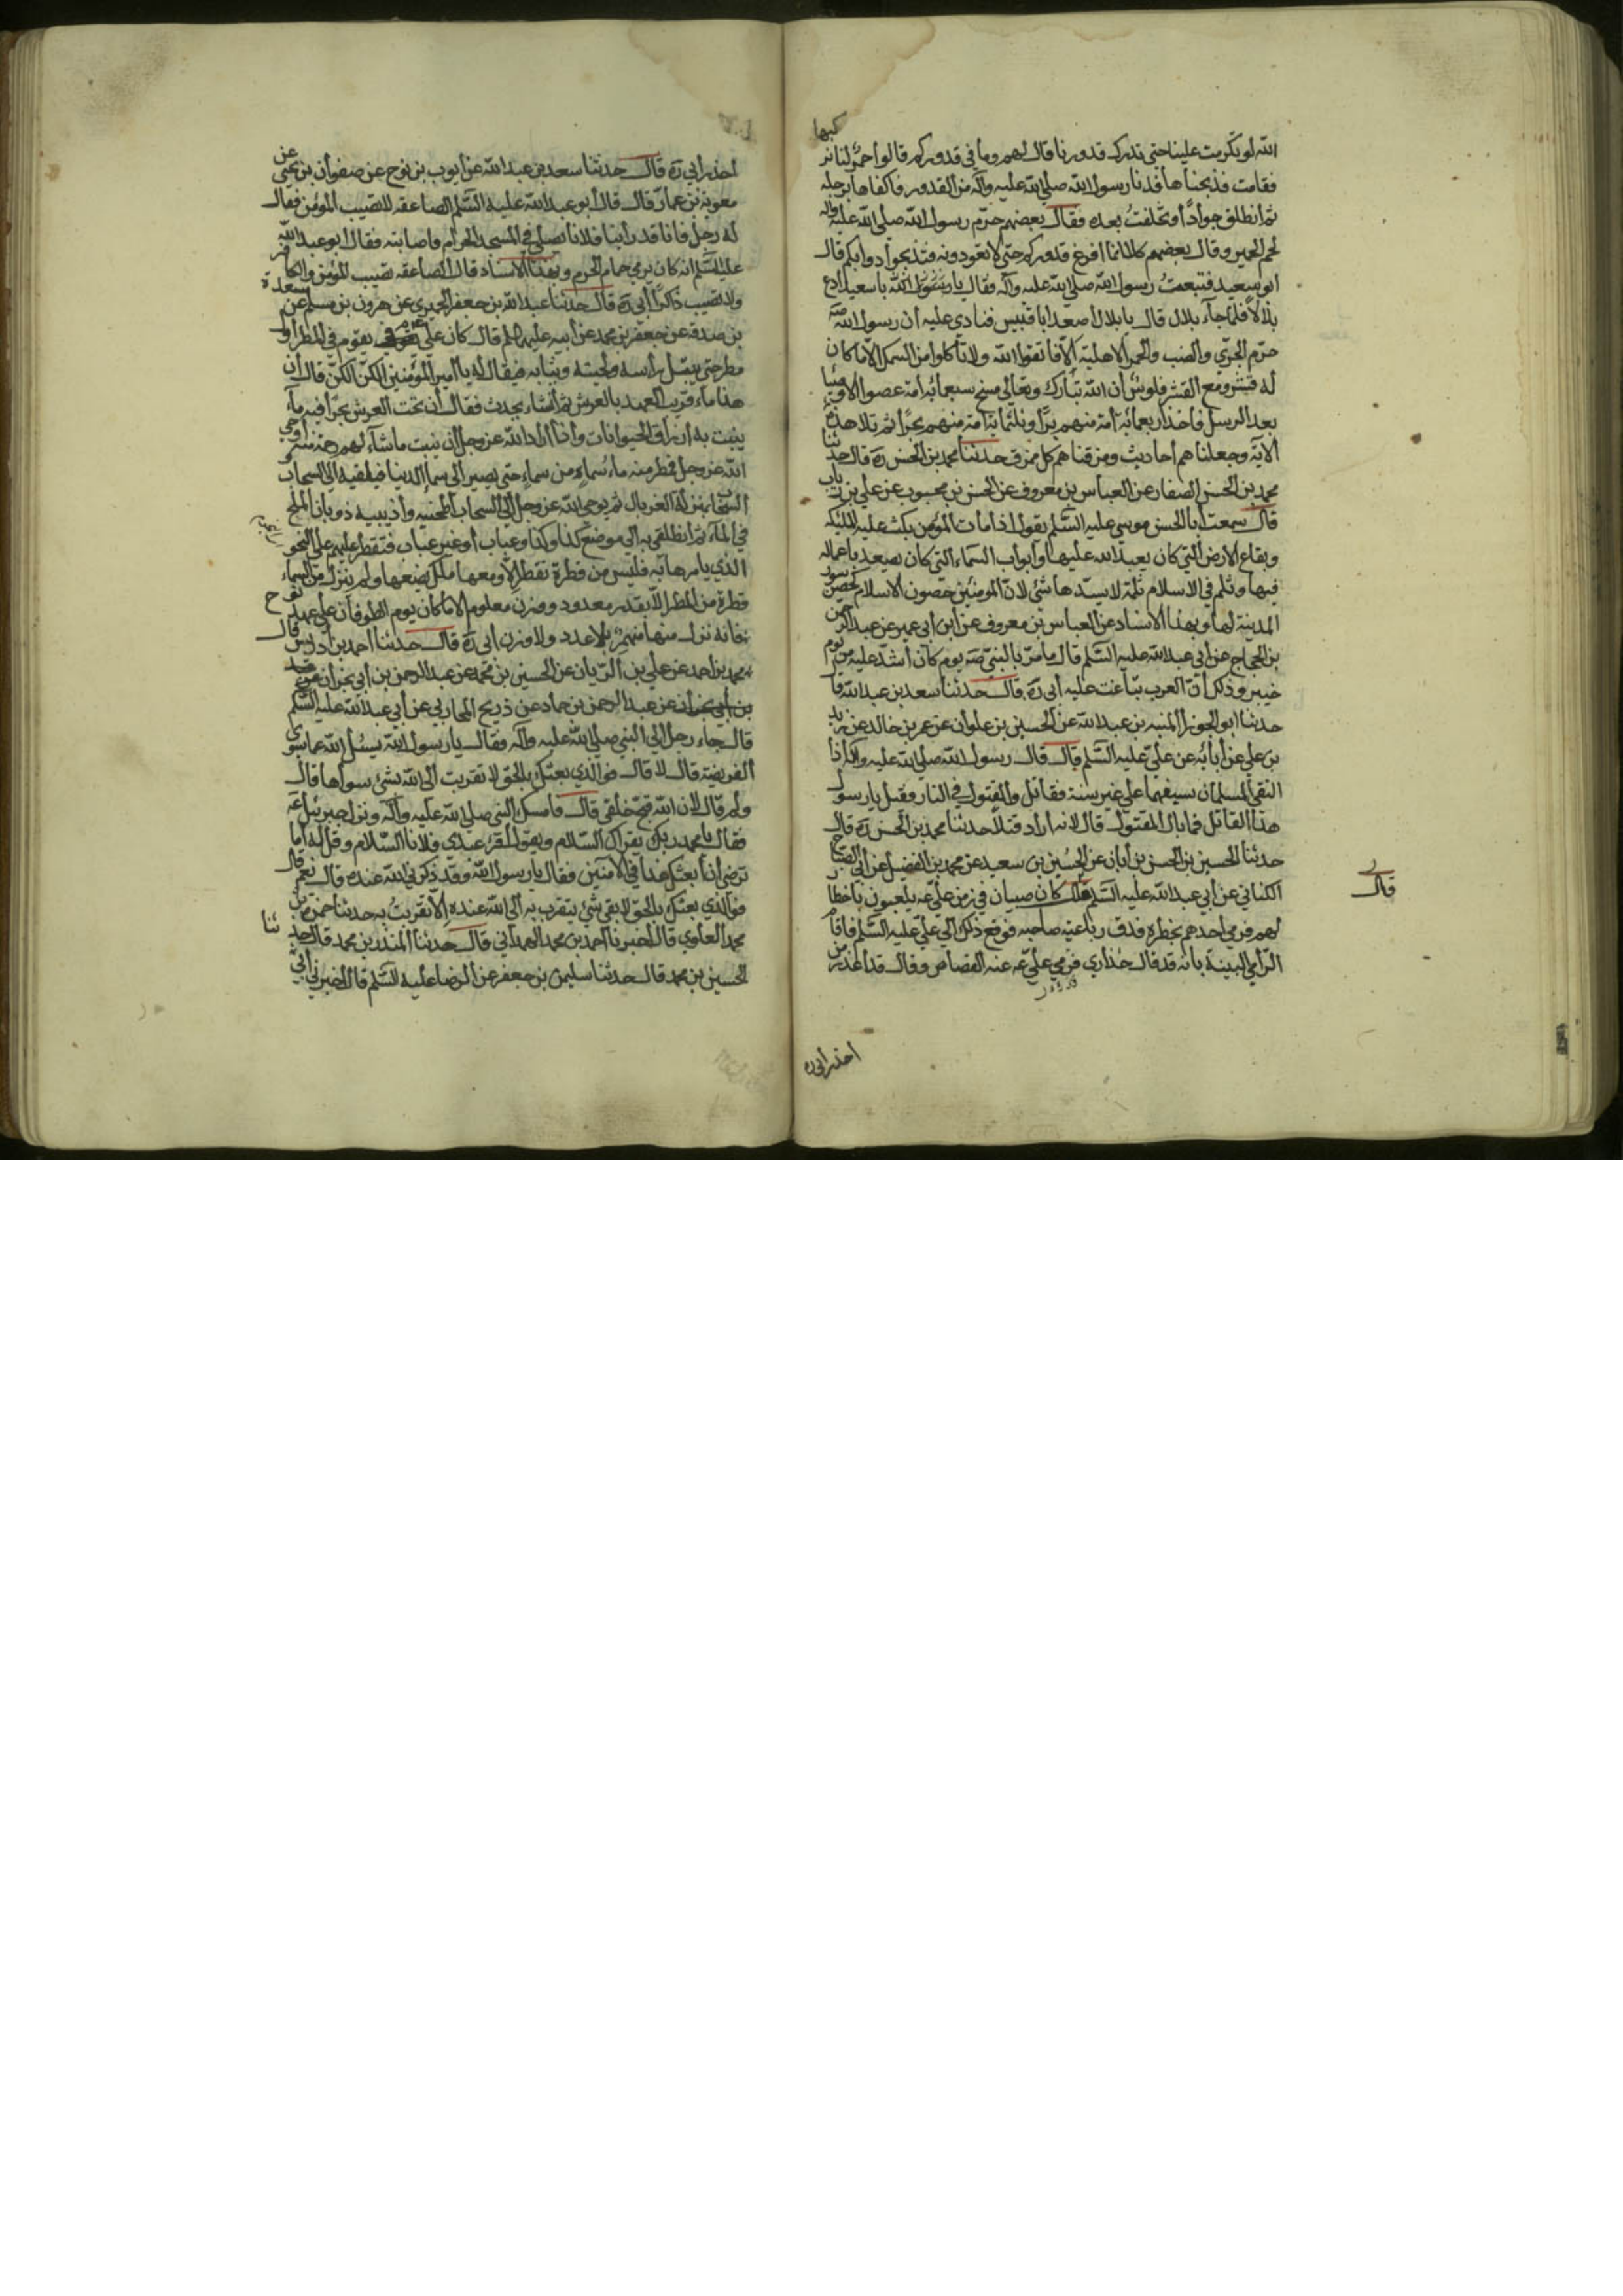 الله لو تكرمت علينا حتى تدرك قدورنا قال لهم وما في قدوركم قالوا حمر لنا نركبها
فقامت فذبحناها فدنا رسول الله صلى الله عليه وآله من القدور فاكفاها برجله
ثم انطلق جوادا وتخلفت بعده فقال بعضهم حرم رسول الله صلى الله عليه وآله
لحم الحمير وقال بعضهم كلا انما افرغ قدوركم حتى لا تعودونه فتذبحوا دوابكم قال
ابو سعيد فتبعت رسول الله صلى الله عليه وآله فقال يا با سعيد ادع
بلالا فلما جاء بلال قال يا بلال اصعد ابا قبيس فنادى عليه ان رسول الله صه
حرم الجري والضب والحمر الاهلية الا فاتقوا الله ولا تأكلوا من السمك الا ما كان
له قشر ومع القشر فلوس ان الله تبارك وتعالى مسخ سبعمائة امة عصوا الاوصياء
بعد الرسل فاخذ اربعمائة امة منهم برا وثلثمائة امة منهم بحرا ثم تلا هذه
الآية وجعلناهم احاديث ومزقناهم كل ممزق حدثنا محمد بن الحسن ره قال حدثنا
محمد بن الحسن الصفار عن العباس بن معروف عن الحسن بن محبوب عن علي بن رياب
قال سمعت ابا الحسن موسى عليه السلم يقول اذا مات المؤمن بكت عليه الملئكه
وبقاع الارض التي كان يعبد الله عليها وابواب السماء التي كان يصعد باعماله
فيها وثلم في الاسلام ثلمة لا يسدها شئ لان المومنين حصون الاسلام كحصن سور
المدينة لها وبهذا الاسناد عن العباس بن معروف عن ابن ابي عمير عن عبد الرحمن
بن الحجاج عن ابي عبد الله عليه السلم قال ما مر بالنبي صه يوم كان اشد عليه من يوم
خيبر وذلك ان العرب تباغت عليه ابي ره قال حدثنا سعد بن عبد الله قال
حدثنا ابو الجوزا المنبه بن عبد الله عن الحسين بن علوان عن عمر بن خالد عن زيد
بن علي عن آبائه عن علي عليه السلم قال قال رسول الله صلى الله عليه وآله اذا
التقى المسلمان بسيفهما على غير سنة فقاتل والمقتول في النار وقيل يا رسول
هذا القاتل فما بال المقتول قال لانه اراد قتلا حدثنا محمد بن الحسن ره قال
حدثنا الحسين بن الحسن بن ابان عن الحسين بن سعيد عن محمد بن الفضيل عن ابي الصباح
الكناني عن ابي عبد الله عليه السلم قال كان صبيان في زمن علي عه يلعبون باخطار
لهم فرمى احدهم بخطره فدق رباعية صاحبه فوقع ذلك الى علي عليه السلم فاقام
الرامي البينة بانه قد قال حذاري فرمى علي عه عنه القصاص وقال قد اعذر من
قال
اخذ ابي ره
اخذ ابي ره قال حدثنا سعد بن عبد الله عن ايوب بن نوح عن صفوان بن يحيى عن
معوية بن عمار قال قال ابو عبد الله عليه السلم الصاعقه لا تصيب المؤمن فقال
له رجل فانا قد رأينا فلانا يصلي في المسجد الحرام فاصابته فقال ابو عبد الله
عليه السلم انه كان يرمي حمام الحرم وبهذا الاسناد قال الصاعقه تصيب المؤمن والكافر
ولا تصيب ذاكرا ابي ره قال حدثنا عبد الله بن جعفر الحميري عن هرون بن مسلم عن مسعدة
بن صدقه عن جعفر بن محمد عن ابيه عليهم السلم قال كان علي يقوم في المطر اول
مطر حتى يبتل راسه ولحيته وثيابه فيقال له يا امير المؤمنين الكن الكن قال ان
هذا ماء قريب العهد بالعرش ثم انشاء يحدث فقال ان تحت العرش بحرا فيه ماء
ينبت به ارزاق الحيوانات واذا اراد الله عز وجل ان ينبت ما شاء لهم رحمة منه اوحى
الله عز وجل فمطر منه ما شاء من سماء حتى يصير الى سماء الدنيا فيلقيه الى السحاب
السحاب بمنزلة الغربال ثم يوحي الله عز وجل الى السحاب اطحنيه واذيبيه ذوبان الملح
في الماء ثم انطلقي به الى موضع كذا وكذا وعباب او غير عباب فتقطر عليهم على النحو
الذي يامرها به فليس من قطرة تقطر الا ومعها ملك يضعها ولم ينزل من السماء
قطرة من المطر الا بقدر معدود ووزن معلوم الا ما كان يوم الطوفان على عهد نوح
فانه نزل منها منهمر بلا عدد ولا وزن ابي ره قال حدثنا احمد بن ادريس قال
محمد بن احمد عن علي بن الريان عن الحسين بن محمد عن عبد الرحمن بن ابي نجران
عن عبد الرحمن بن حماد عن ذريح المحاربي عن ابي عبد الله عليه السلم
قال جاء رجل الى النبي صلى الله عليه وآله وقال يا رسول الله يسئل الله عما سوى
الفريضة قال لا قال فوالذي بعثك بالحق لا تقربت الى الله بشئ سواها قال
ولم قال لان الله قبح خلقي قال فامسك النبي صلى الله عليه وآله ونزل جبرئيل عه
فقال يا محمد ربك يقرأك السلام ويقول اقرء عبدي فلانا السلام وقل له اما
ترضى ان ابعثك غدا في الآمنين فقال يا رسول الله وقد ذكرني الله عنده قال نعم قال
فوالذي بعثك بالحق لا بقي شئ يتقرب به الى الله عنده الا تقربت به حدثنا حمزة بن
محمد العلوي قال اخبرنا احمد بن محمد الهمداني قال حدثنا المنذر بن محمد قال حدثنا
الحسين بن محمد قال حدثنا سليمن بن جعفر عن الرضا عليه السلم قال اخبرني ابي